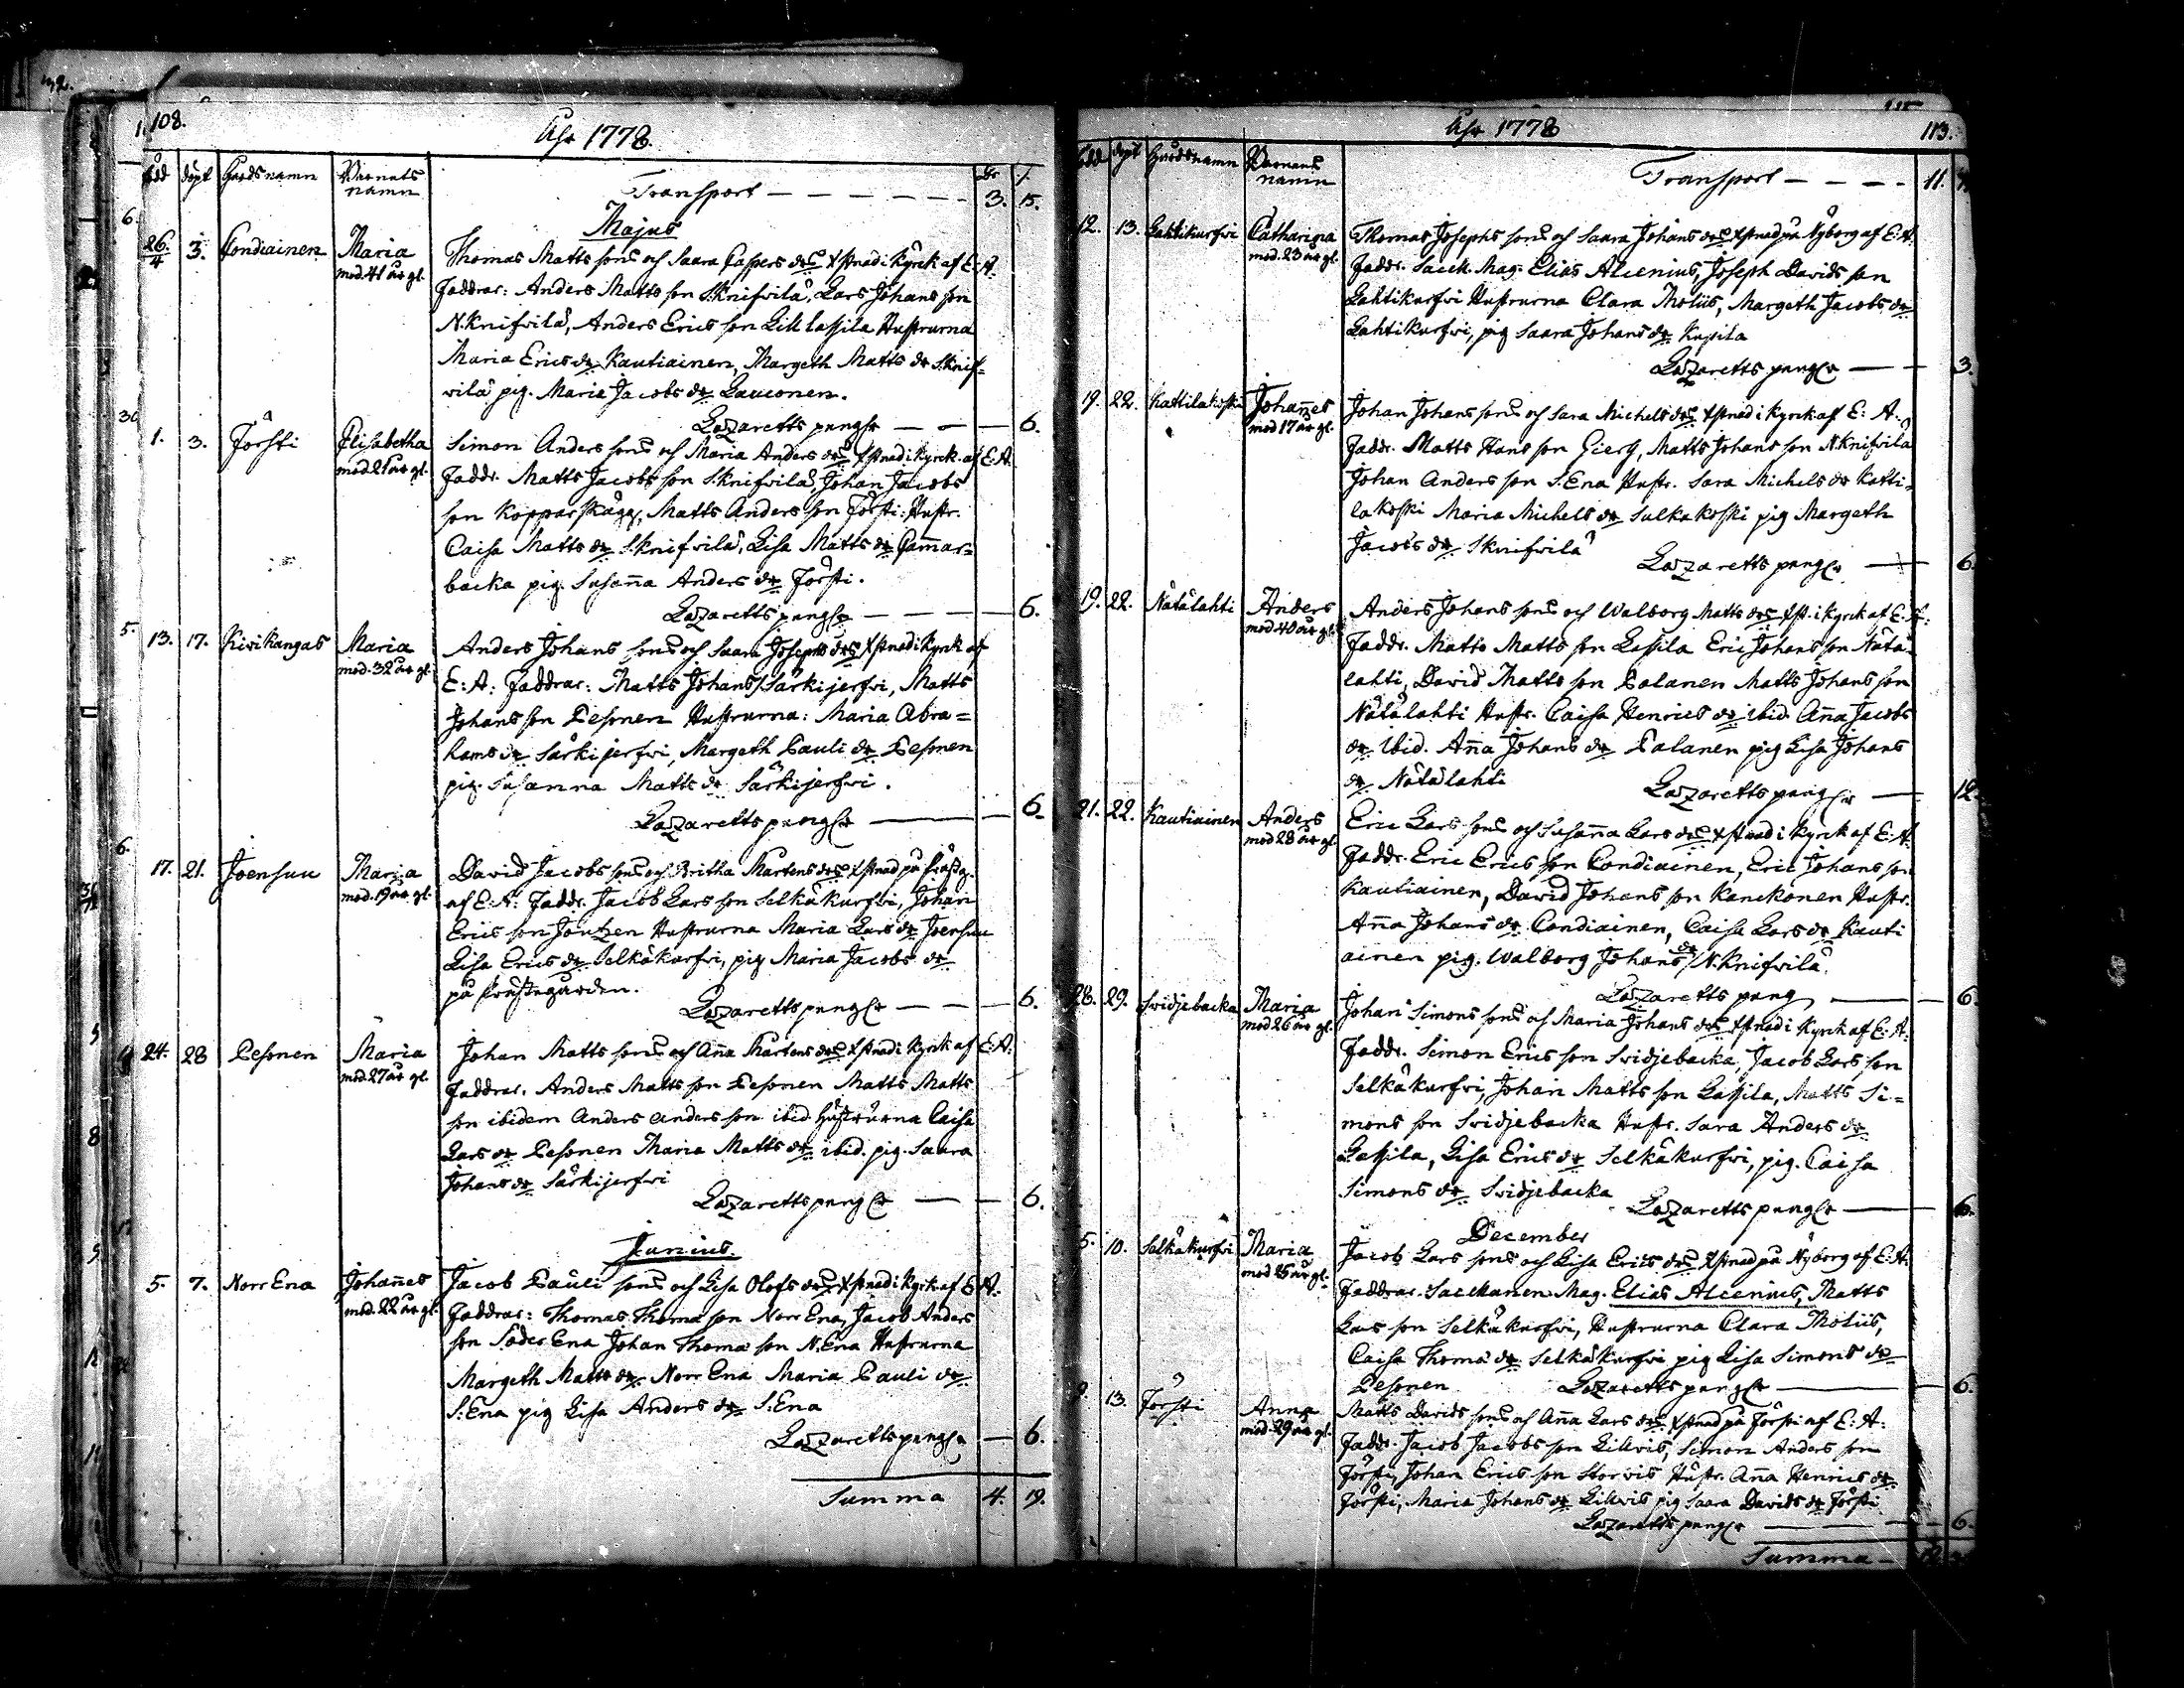 108.
Åhr 1778.
född döpt Gårdsnamn Barnets namn
Transport — 3. 15.
Majus
26/4 3. Condiainen Maria mod. 41 år gl.
Thomas Matts sons och Saara Caspers drs Xstnad i Kyrck. af E: A:
Faddrar: Anders Matts son S.Knifvilä, Lars Johans son
N.Knifvilä, Anders Erics son Lill lassila Hustrurna
Maria Erics dr Kautiainen, Margeth Matts dr S.Knif=
vilä pig. Maria Jacobs dr Lauconen.
Lazaretts pengar — 6.
1. 3. Försti Elisabetha mod. 21 år gl.
Simon Anders sons och Maria Anders drs Xstnad i Kyrck. af E: A.
Faddr. Matts Jacobs son S.Knifvilä, Johan Jacobs
son Kopparskägg, Matts Anders son Försti: Hustr.
Caisa Matts dr S.Knifvilä, Lisa Matts dr Gammar=
backa pig. Susanna Anders dr Försti.
Lazaretts pengar — 6.
13. 17. Kivikangas Maria mod. 32 år gl.
Anders Johans sons och Saara Josephs drs Xstnad i Kyrk af
E: A: Faddrar: Matts Johans/Särkijerfvi, Matts
Johans son Pesonen Hustrurna: Maria Abra=
hams dr Särkijerfvi, Margeth Pauli dr Pesonen
pig. Susanna Matts dr Särkijerfvi.
Lazaretts pengar — 6.
17. 21. Joensuu Maria mod. 19 år gl.
David Jacobs sons och Britha Mårtens drs Xstnad på Prästg.
af E: A: Faddr. Jacob Lars son Selkäkurfvi, Johan
Erics son Joutzen Hustrurna Maria Lars dr Joensuu
Lisa Erics dr Selkäkurfvi, pig Maria Jacobs dr
på Prästegården.
Lazaretts pengar — 6.
24. 28 Pesonen Maria mod. 27 år gl.
Johan Matts sons och Anna Mårtens drs Xstnad i Kyrck af E: A:
Faddrar. Anders Matts son Pesonen Matts Matts
son ibidem Anders Anders son ibid. Hustrurna Caisa
Lars dr Pesonen Maria Matts dr ibid. pig. Saara
Johans dr Särkijerfvi
Lazaretts pengar — 6.
Junius.
5. 7. Norr Ena Johannes mod. 22 år gl.
Jacob Pauli sons och Lisa Olofs drs Xstnad i Kyrk af E: A:
Faddrar: Thomas Thoma son Norr Ena, Jacob Anders
son Söder Ena Johan Thoma son N.Ena Hustrurna
Margeth Matts dr Norr Ena Maria Pauli dr
S: Ena pig Lisa Anders dr S: Ena
Lazaretts pengar — 6.
Summa 4. 19.
Åhr 1778
113.
född döpt Gårdsnamn Barnens namn
Transport — 11.
12. 13. Lahtikurfvi Catharina mod. 23 år gl.
Thomas Josephs sons och Saara Johans drs Xstnad på Nyborg af E: A.
Faddr. Sacell. Mag. Elias Alcenius, Joseph Davids son
Lahtikurfvi Hustrurna Clara Moliis, Margeth Jacobs dr
Lahtikurfvi, pig Saara Johans dr Kupila
Lazaretts pengar — 3.
19. 22. Kattilakoski Johannes mod 17 år gl.
Johan Johans sons och Sara Michels drs Xstnad i Kyrck af E: A.
Faddr. Matts Hans son Giers, Matts Johans son N.Knifvilä
Johan Anders son S: Ena Hustr. Sara Michels dr Katti=
lakoski Maria Michels dr Sulkakoski pig Margeth
Jacobs dr S.Knifvilä
Lazaretts pengar — 6.
19. 22. Nätälahti Anders mod 40 år gl.
Anders Johans sons och Walborg Matts drs Xst. i Kyrck af E: A:
Faddr. Matts Matts son Lassila Eric Johans son Nätä=
lahti, David Matts son Palanen Matts Johans son
Nätälahti Hustr. Caisa Henrics dr ibid. Anna Jacobs
dr ibid. Anna Johans dr Palanen pig Lisa Johans
dr Nätälahti
Lazaretts pengar — 12.
21. 22. Kautiainen Anders mod 28 år gl
Eric Lars sons och Susanna Lars drs Xstnad i Kyrck af E: A.
Faddr. Eric Erics son Condiainen, Eric Johans son
Kautiainen, David Johans son Kanckonen Hustr.
Anna Johans dr Condiainen, Caisa Lars dr Kauti
ainen pig. Walborg Johans dr/N.Knifvilä.
Lazaretts peng — 6.
28. 29. Svidjebacka Maria mod 26 år gl.
Johan Simons sons och Maria Johans drs Xstnad i Kyrck af E: A:
Faddr. Simon Erics son Svidjebacka, Jacob Lars son
Selkäkurfvi, Johan Matts son Lassila, Matts Si=
mons son Svidjebacka Hustr. Sara Anders dr
Lassila, Lisa Erics dr Selkäkurfvi, pig. Caisa
Simons dr Svidjebacka
Lazaretts pengar — 6.
December
5. 10. Selkäkurfvi Maria mod 25 år gl.
Jacob Lars sons och Lisa Erics drs Xstnad på Nyborg af E: A:
Faddrar. Sacellanen Mag. Elias Alcenius, Matts
Lars son Selkäkurfvi, Hustrurna Clara Moliis,
Caisa Thoma dr Selkäkurfvi pig Lisa Simons dr
Pesonen
Lazaretts pengar — 6.
9. 13. Försti Anna mod. 29 år gl.
Matts Davids sons och Anna Lars drs Xstnad på Försti af E: A:
Faddr. Jacob Jacobs son Lillvis, Simon Anders son
Försti, Johan Erics son Storvis Hustr. Anna Henrics dr
Försti, Maria Johans dr Lillvis pig Saara Davids dr Försti
Lazaretts pengar — 6.
Summa —